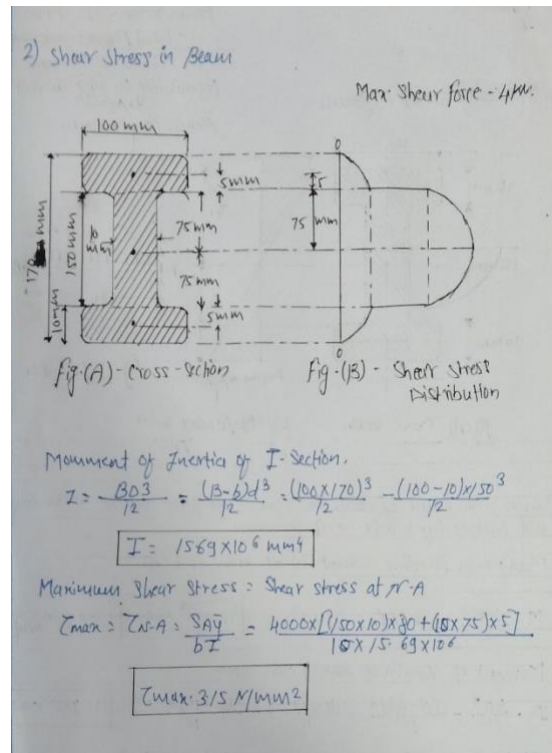 2) Shear Stress in Beam
Max. Shear force - 4kN.
100mm
0
5mm
5
170 mm
150 mm
10 mm
75mm
75 mm
75mm
10mm
5mm
0
Fig.(A) - Cross-section
Fig-(B) - Shear Stress Distribution
Momment of Inertia of I-Section.
I = BD3/12 = (B-b)d3/12 = (100x170)3/12 - (100-10)x1503/12
I = 1569x106 mm4
Maximum Shear Stress = Shear stress at N-A
τmax = τN-A = SAȳ/bI = 4000x[(150x10)x80+(10x75)x5]/10x15.69x106
τmax. 315 N/mm2